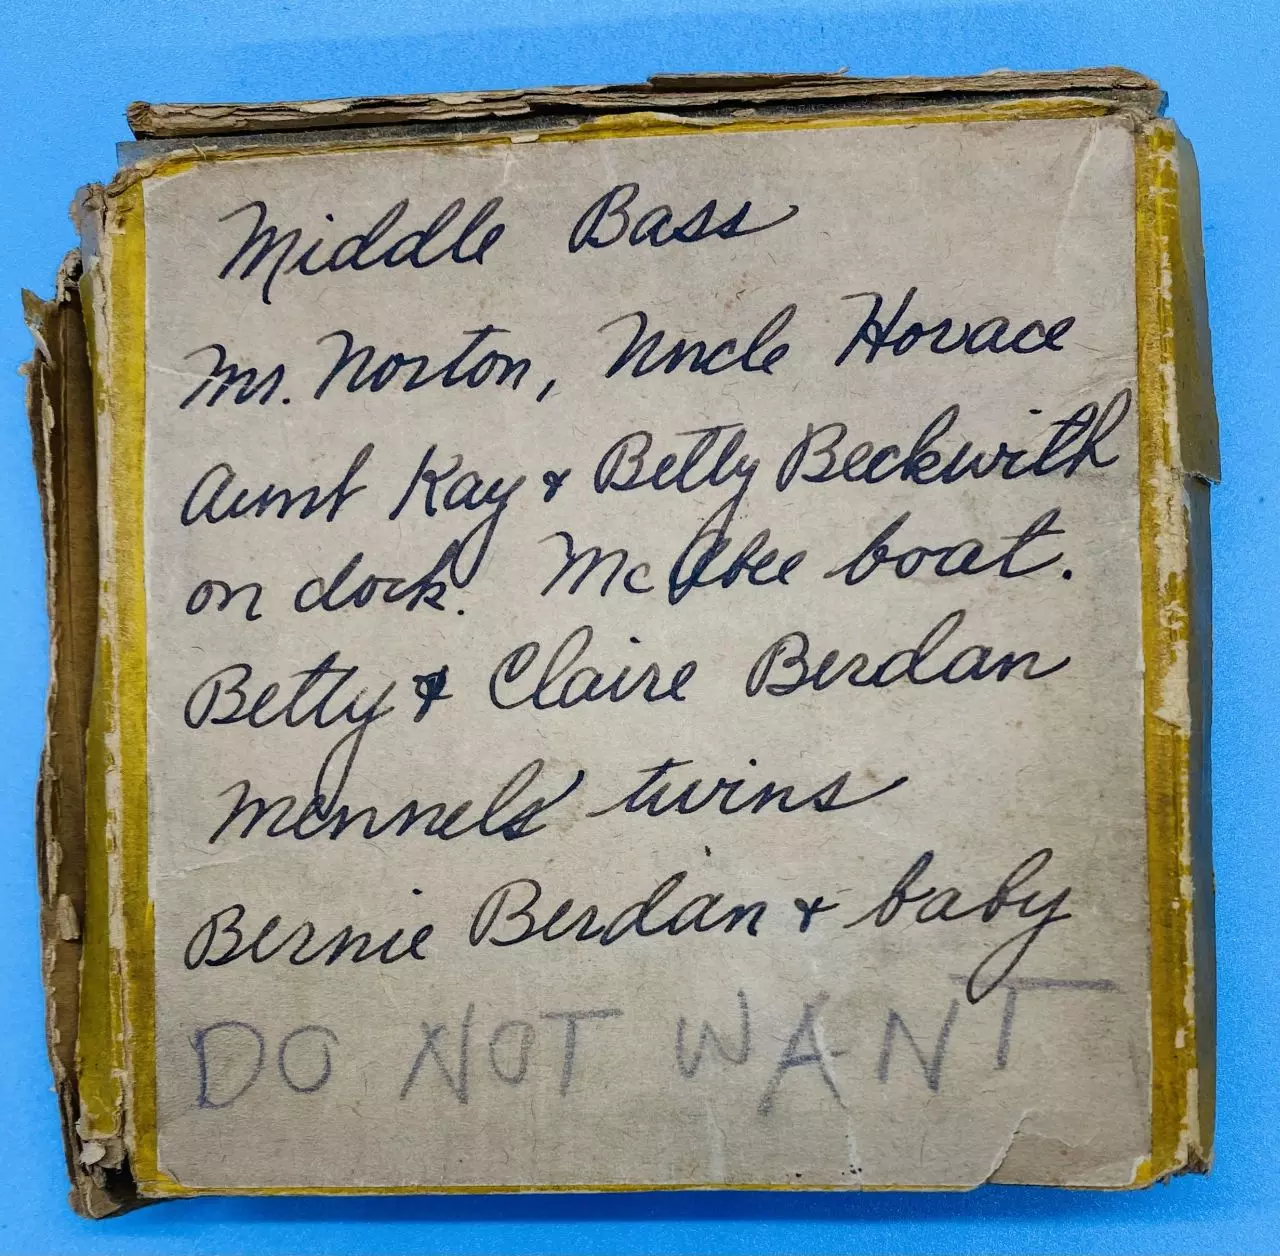 Middle Bass
Mr. Norton, Uncle Horace
Aunt Kay & Betty Beckwith
on dock. McAbee boat.
Betty & Claire Berdan
Mennels twins
Bernie Berdan & baby
DO NOT WANT